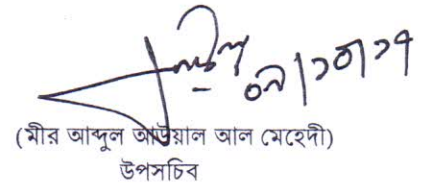 ০৯/১০/১৭
(মীর আব্দুল আউয়াল আল মেহেদী)
উপসচিব